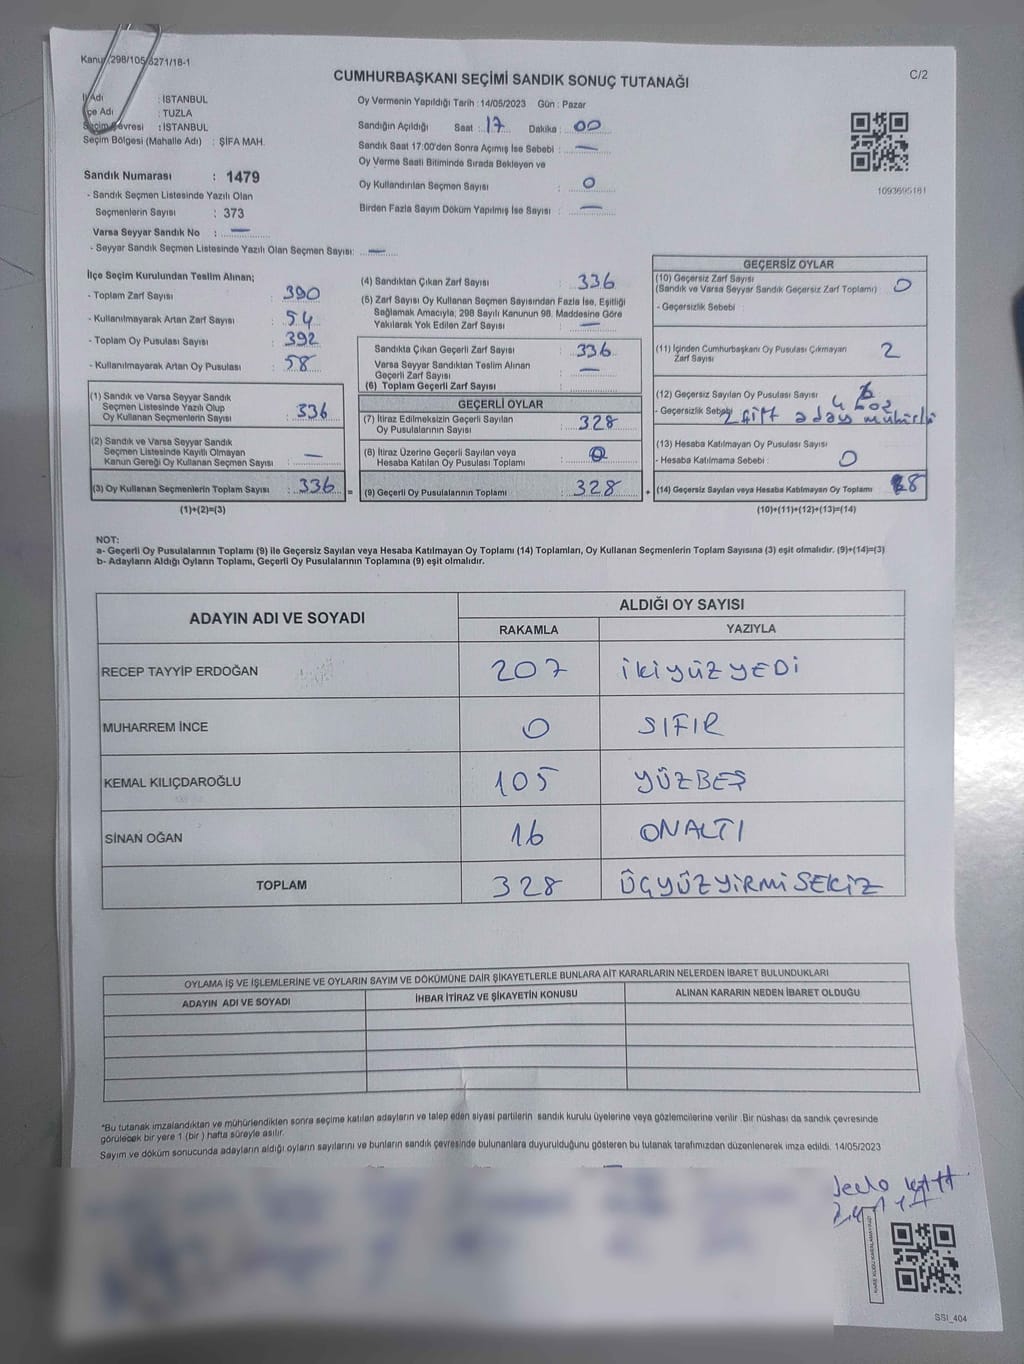 Kanun/298/105/6271/18-1
CUMHURBAŞKANI SEÇİMİ SANDIK SONUÇ TUTANAĞI
C/2
İl Adı : İSTANBUL
İlçe Adı : TUZLA
Seçim Çevresi : İSTANBUL
Seçim Bölgesi (Mahalle Adı) : ŞİFA MAH.
Sandık Numarası : 1479
- Sandık Seçmen Listesinde Yazılı Olan
Seçmenlerin Sayısı : 373
Varsa Seyyar Sandık No : —
- Seyyar Sandık Seçmen Listesinde Yazılı Olan Seçmen Sayısı: —
Oy Vermenin Yapıldığı Tarih : 14/05/2023 Gün : Pazar
Sandığın Açıldığı Saat : 17 Dakika : 00
Sandık Saat 17:00'den Sonra Açımış İse Sebebi : —
Oy Verme Saati Bitiminde Sırada Bekleyen ve
Oy Kullandırılan Seçmen Sayısı : 0
Birden Fazla Sayım Döküm Yapılmış İse Sayısı : —
1093695181
İlçe Seçim Kurulundan Teslim Alınan;
- Toplam Zarf Sayısı : 390
- Kullanılmayarak Artan Zarf Sayısı : 54
- Toplam Oy Pusulası Sayısı : 392
- Kullanılmayarak Artan Oy Pusulası : 58
(1) Sandık ve Varsa Seyyar Sandık
Seçmen Listesinde Yazılı Olup
Oy Kullanan Seçmenlerin Sayısı : 336
(2) Sandık ve Varsa Seyyar Sandık
Seçmen Listesinde Kayıtlı Olmayan
Kanun Gereği Oy Kullanan Seçmen Sayısı : —
(3) Oy Kullanan Seçmenlerin Toplam Sayısı : 336 =
(1)+(2)=(3)
(4) Sandıktan Çıkan Zarf Sayısı : 336
(5) Zarf Sayısı Oy Kullanan Seçmen Sayısından Fazla İse, Eşitliği
Sağlamak Amacıyla; 298 Sayılı Kanunun 98. Maddesine Göre
Yakılarak Yok Edilen Zarf Sayısı : —
Sandıkta Çıkan Geçerli Zarf Sayısı : 336
Varsa Seyyar Sandıktan Teslim Alınan
Geçerli Zarf Sayısı : —
(6) Toplam Geçerli Zarf Sayısı :
GEÇERLİ OYLAR
(7) İtiraz Edilmeksizin Geçerli Sayılan
Oy Pusulalarının Sayısı : 328
(8) İtiraz Üzerine Geçerli Sayılan veya
Hesaba Katılan Oy Pusulası Toplamı : 0
(9) Geçerli Oy Pusulalarının Toplamı : 328 +
GEÇERSİZ OYLAR
(10) Geçersiz Zarf Sayısı
(Sandık ve Varsa Seyyar Sandık Geçersiz Zarf Toplamı) : 0
- Geçersizlik Sebebi
(11) İçinden Cumhurbaşkanı Oy Pusulası Çıkmayan
Zarf Sayısı 2
(12) Geçersiz Sayılan Oy Pusulası Sayısı : 6
- Geçersizlik Sebebi 4
2 çift aday mühürlü
(13) Hesaba Katılmayan Oy Pusulası Sayısı
- Hesaba Katılmama Sebebi : 0
(14) Geçersiz Sayılan veya Hesaba Katılmayan Oy Toplamı 8
(10)+(11)+(12)+(13)=(14)
NOT:
a- Geçerli Oy Pusulalarının Toplamı (9) ile Geçersiz Sayılan veya Hesaba Katılmayan Oy Toplamı (14) Toplamları, Oy Kullanan Seçmenlerin Toplam Sayısına (3) eşit olmalıdır. (9)+(14)=(3)
b- Adayların Aldığı Oyların Toplamı, Geçerli Oy Pusulalarının Toplamına (9) eşit olmalıdır.
ADAYIN ADI VE SOYADI ALDIĞI OY SAYISI
RAKAMLA YAZIYLA
RECEP TAYYİP ERDOĞAN 207 İKİYÜZYEDİ
MUHARREM İNCE 0 SIFIR
KEMAL KILIÇDAROĞLU 105 YÜZBEŞ
SİNAN OĞAN 16 ONALTI
TOPLAM 328 ÜÇYÜZYİRMİSEKİZ
OYLAMA İŞ VE İŞLEMLERİNE VE OYLARIN SAYIM VE DÖKÜMÜNE DAİR ŞİKAYETLERLE BUNLARA AİT KARARLARIN NELERDEN İBARET BULUNDUKLARI
ADAYIN ADI VE SOYADI İHBAR İTİRAZ VE ŞİKAYETİN KONUSU ALINAN KARARIN NEDEN İBARET OLDUĞU
*Bu tutanak imzalandıktan ve mühürlendikten sonra seçime katılan adayların ve talep eden siyasi partilerin sandık kurulu üyelerine veya gözlemcilerine verilir .Bir nüshası da sandık çevresinde
görülecek bir yere 1 (bir ) hafta süreyle asılır.
Sayım ve döküm sonucunda adayların aldığı oyların sayılarını ve bunların sandık çevresinde bulunanlara duyurulduğunu gösteren bu tutanak tarafımızdan düzenlenerek imza edildi. 14/05/2023
KARE KODU KARALAMAYINIZ!
SSI_404